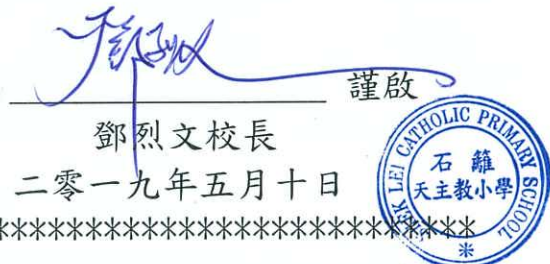 謹啟
鄧烈文校長
二零一九年五月十日
SHEK LEI CATHOLIC PRIMARY SCHOOL
石籬
天主教小學
*
**********************************